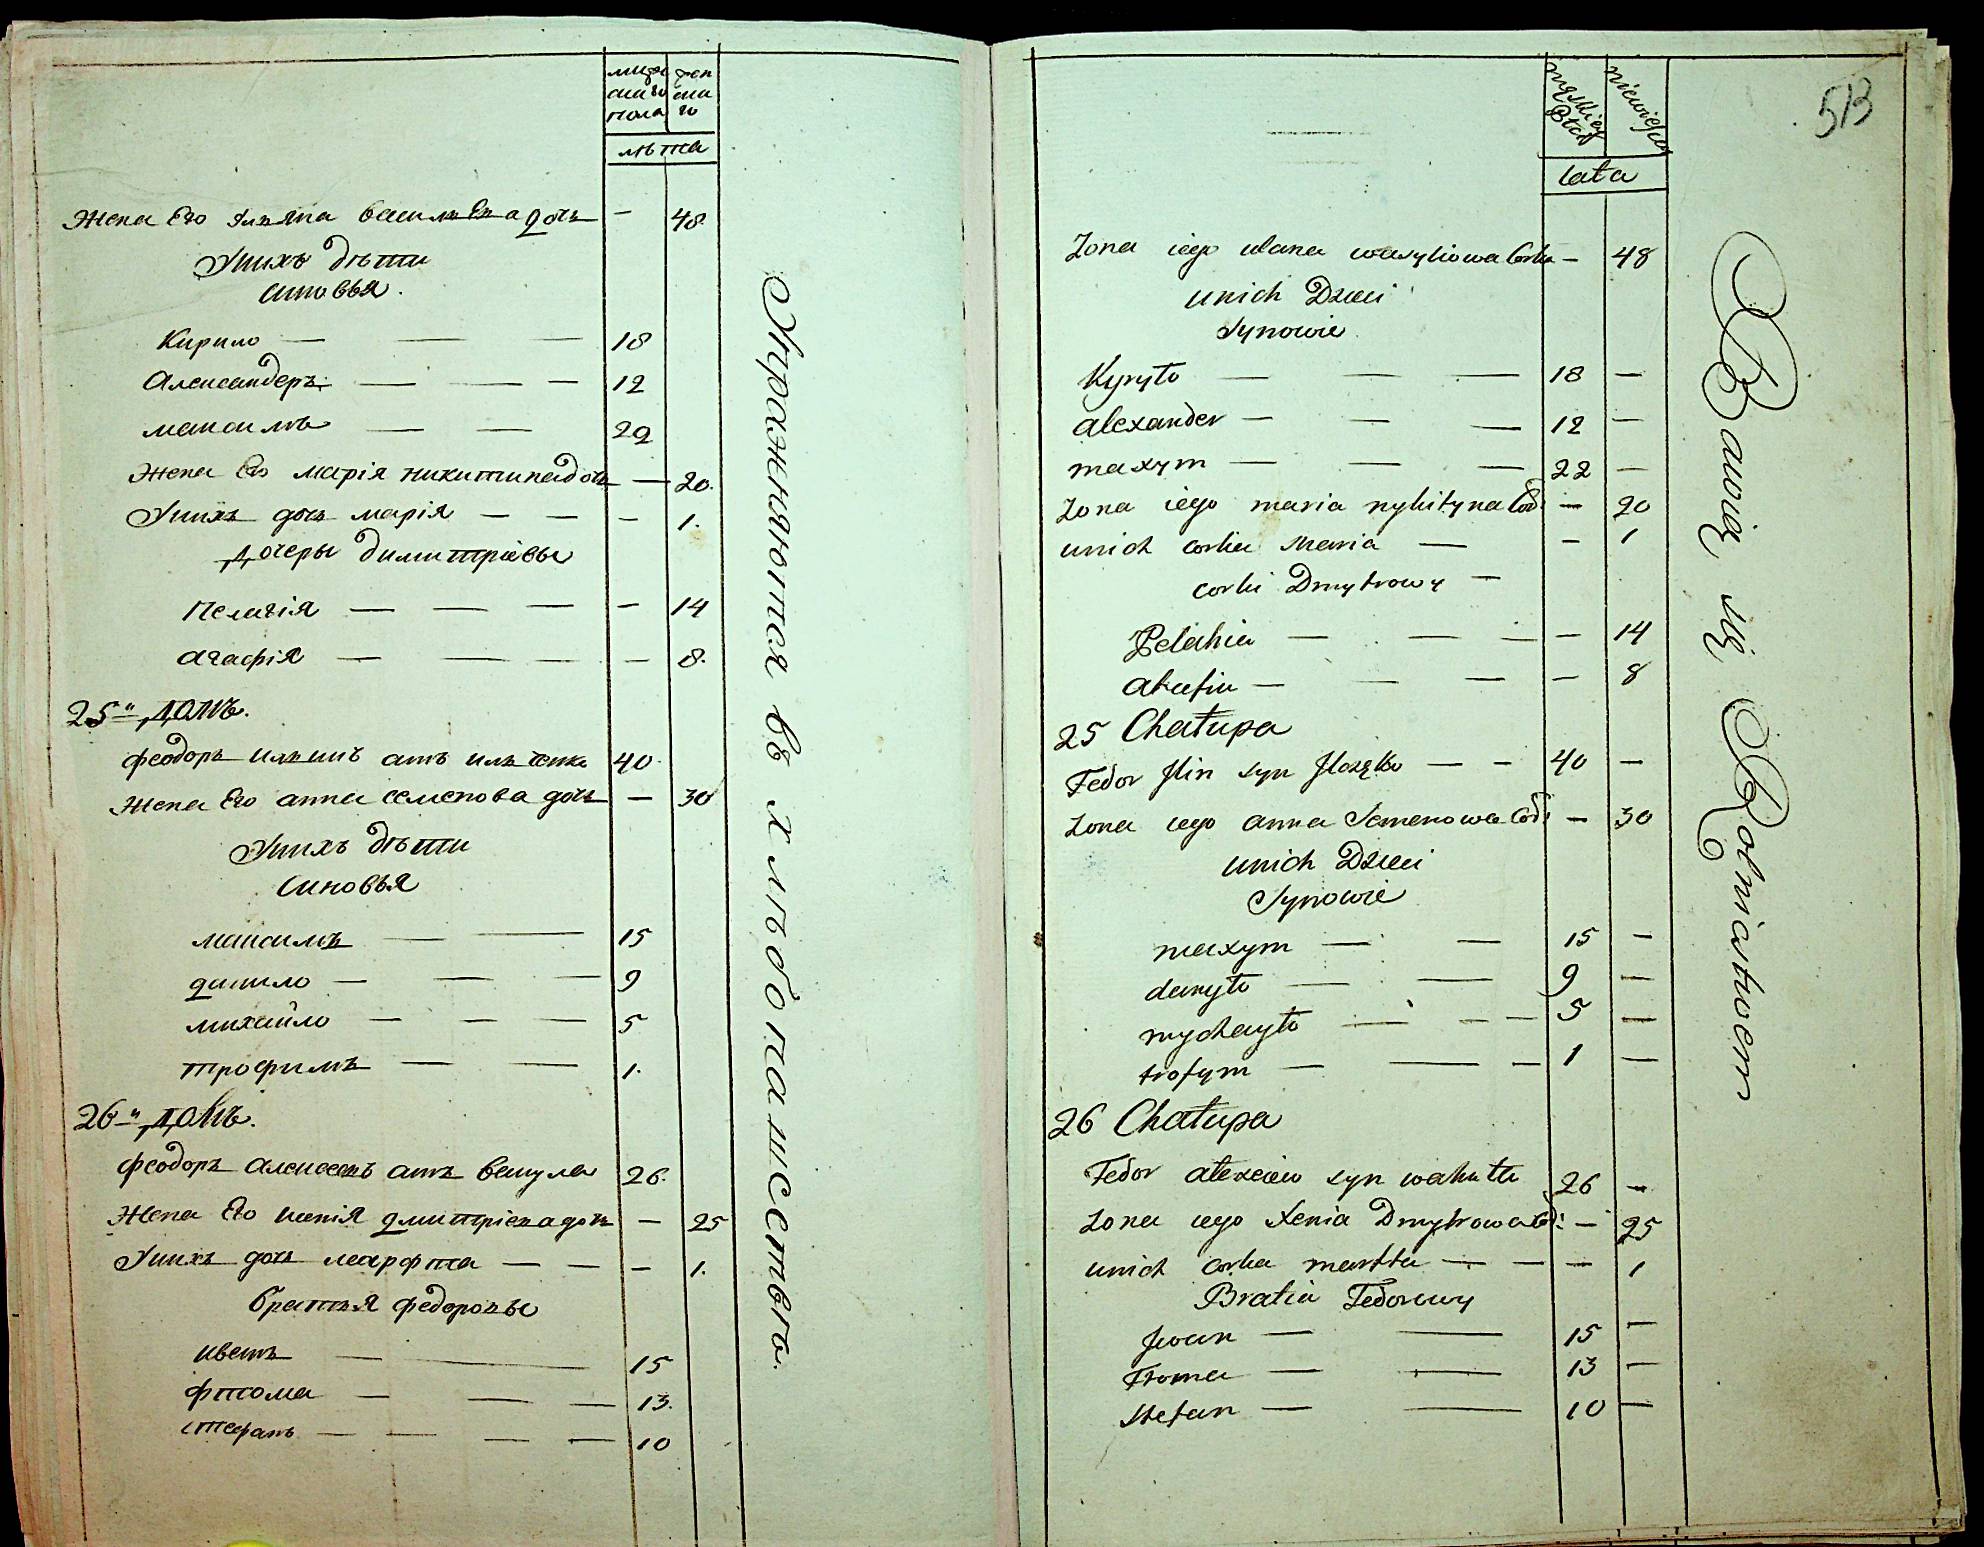 мужескаго пола
женскаго
лѣта
Жена Его Уляна васильева дочь — 48.
У нихъ дѣти
синовья.
Кирило — — — 18
Александеръ — — — 12
максимъ — — 22
Жена Его марія никитина дочь — 20.
У нихъ дочь марія — — — 1.
дочеры димитріевы
Пелагія — — — — 14
агафія — — — — 8.
25й домъ.
феодоръ ильинъ сынъ 40.
Жена Его анна семенова дочь — 30
У нихъ дѣти
синовья
максимъ — — 15
данило — — — 9
михайло — — — 5
трофимъ — — 1.
26й домъ.
феодоръ алексеевъ сынъ вакула 26.
Жена Его ксенія дмитріева дочь — 25
У нихъ дочь марфта — — — 1.
братья федоровы
иванъ — — 15
фтома — — — 13.
стефанъ — — — — 10
Упражняются въ хлѣбопашествѣ.
513
męskiey Płci
niewieściey
lata
Zona iego ulana wasyliowa Corka — 48
unich Dzieci
Synowie
Kyryło — — — 18 —
alexander — — — 12 —
maxym — — — 22 —
Zona iego maria nykityna Cor: — 20
unich corka Maria — — 1
corki Dmytrowy —
Pelahia — — — — 14
ahafia — — — — 8
25 Chałupa
Fedor Ilin syn — — 40 —
Zona iego anna Semenowa Cor: — 30
unich Dzieci
Synowie
maxym — — 15 —
danyło — — 9 —
mychayło — — — 5 —
trofym — — — 1 —
26 Chałupa
Fedor alexeiew syn wakuła 26 —
Zona iego Xenia Dmytrowa Cor: — 25
unich corka martta — — — 1
Bratia Fedorowy
Jwan — — 15 —
Ftoma — — 13 —
Stefan — — 10 —
Bawią się Rolnictwem